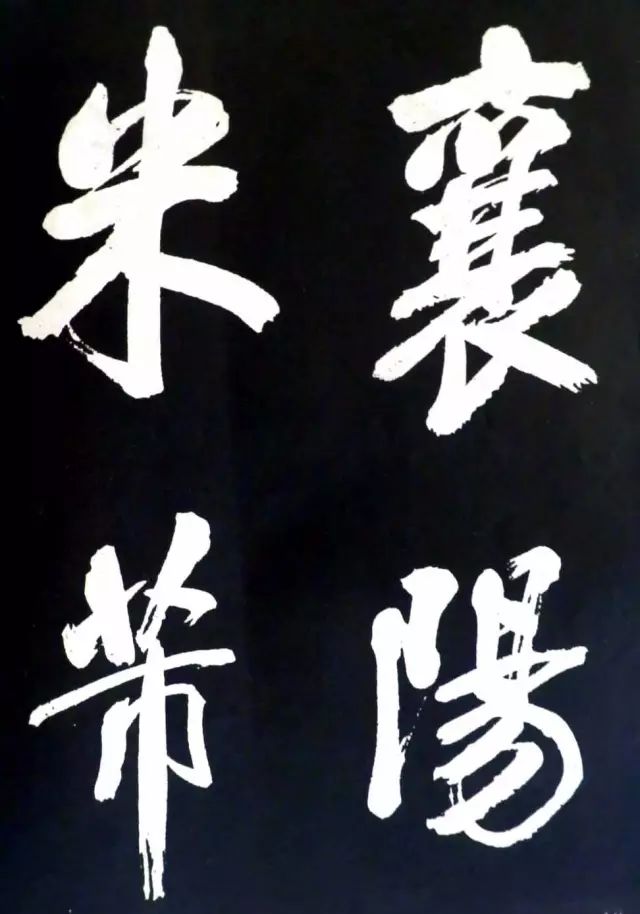 襄陽
米芾